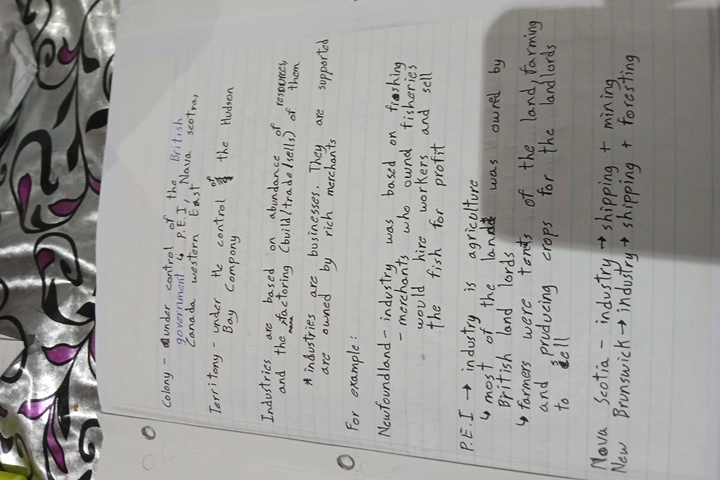 Colony - under control of the British
government ↳ P.E.I, Nava scotra,
Canada western East
Territony - under the control of the Hudson
Bay Company
Industries are based on abundance of resources,
and the manufactoring (build/trade/sells) of them
* industries are businesses. They are supported
are owned by rich merchants
For example:
Newfoundland - industry was based on fishing
- merchants who owned fisheries
would hire workers and sell
the fish for profit
P.E.I → industry is agriculture
↳ most of the land was owned by
British land lords
↳ farmers were tents of the land, farming
and producing crops for the landlords
to sell
Nova Scotia - industry → shipping + mining
New Brunswick → industry → shipping + foresting